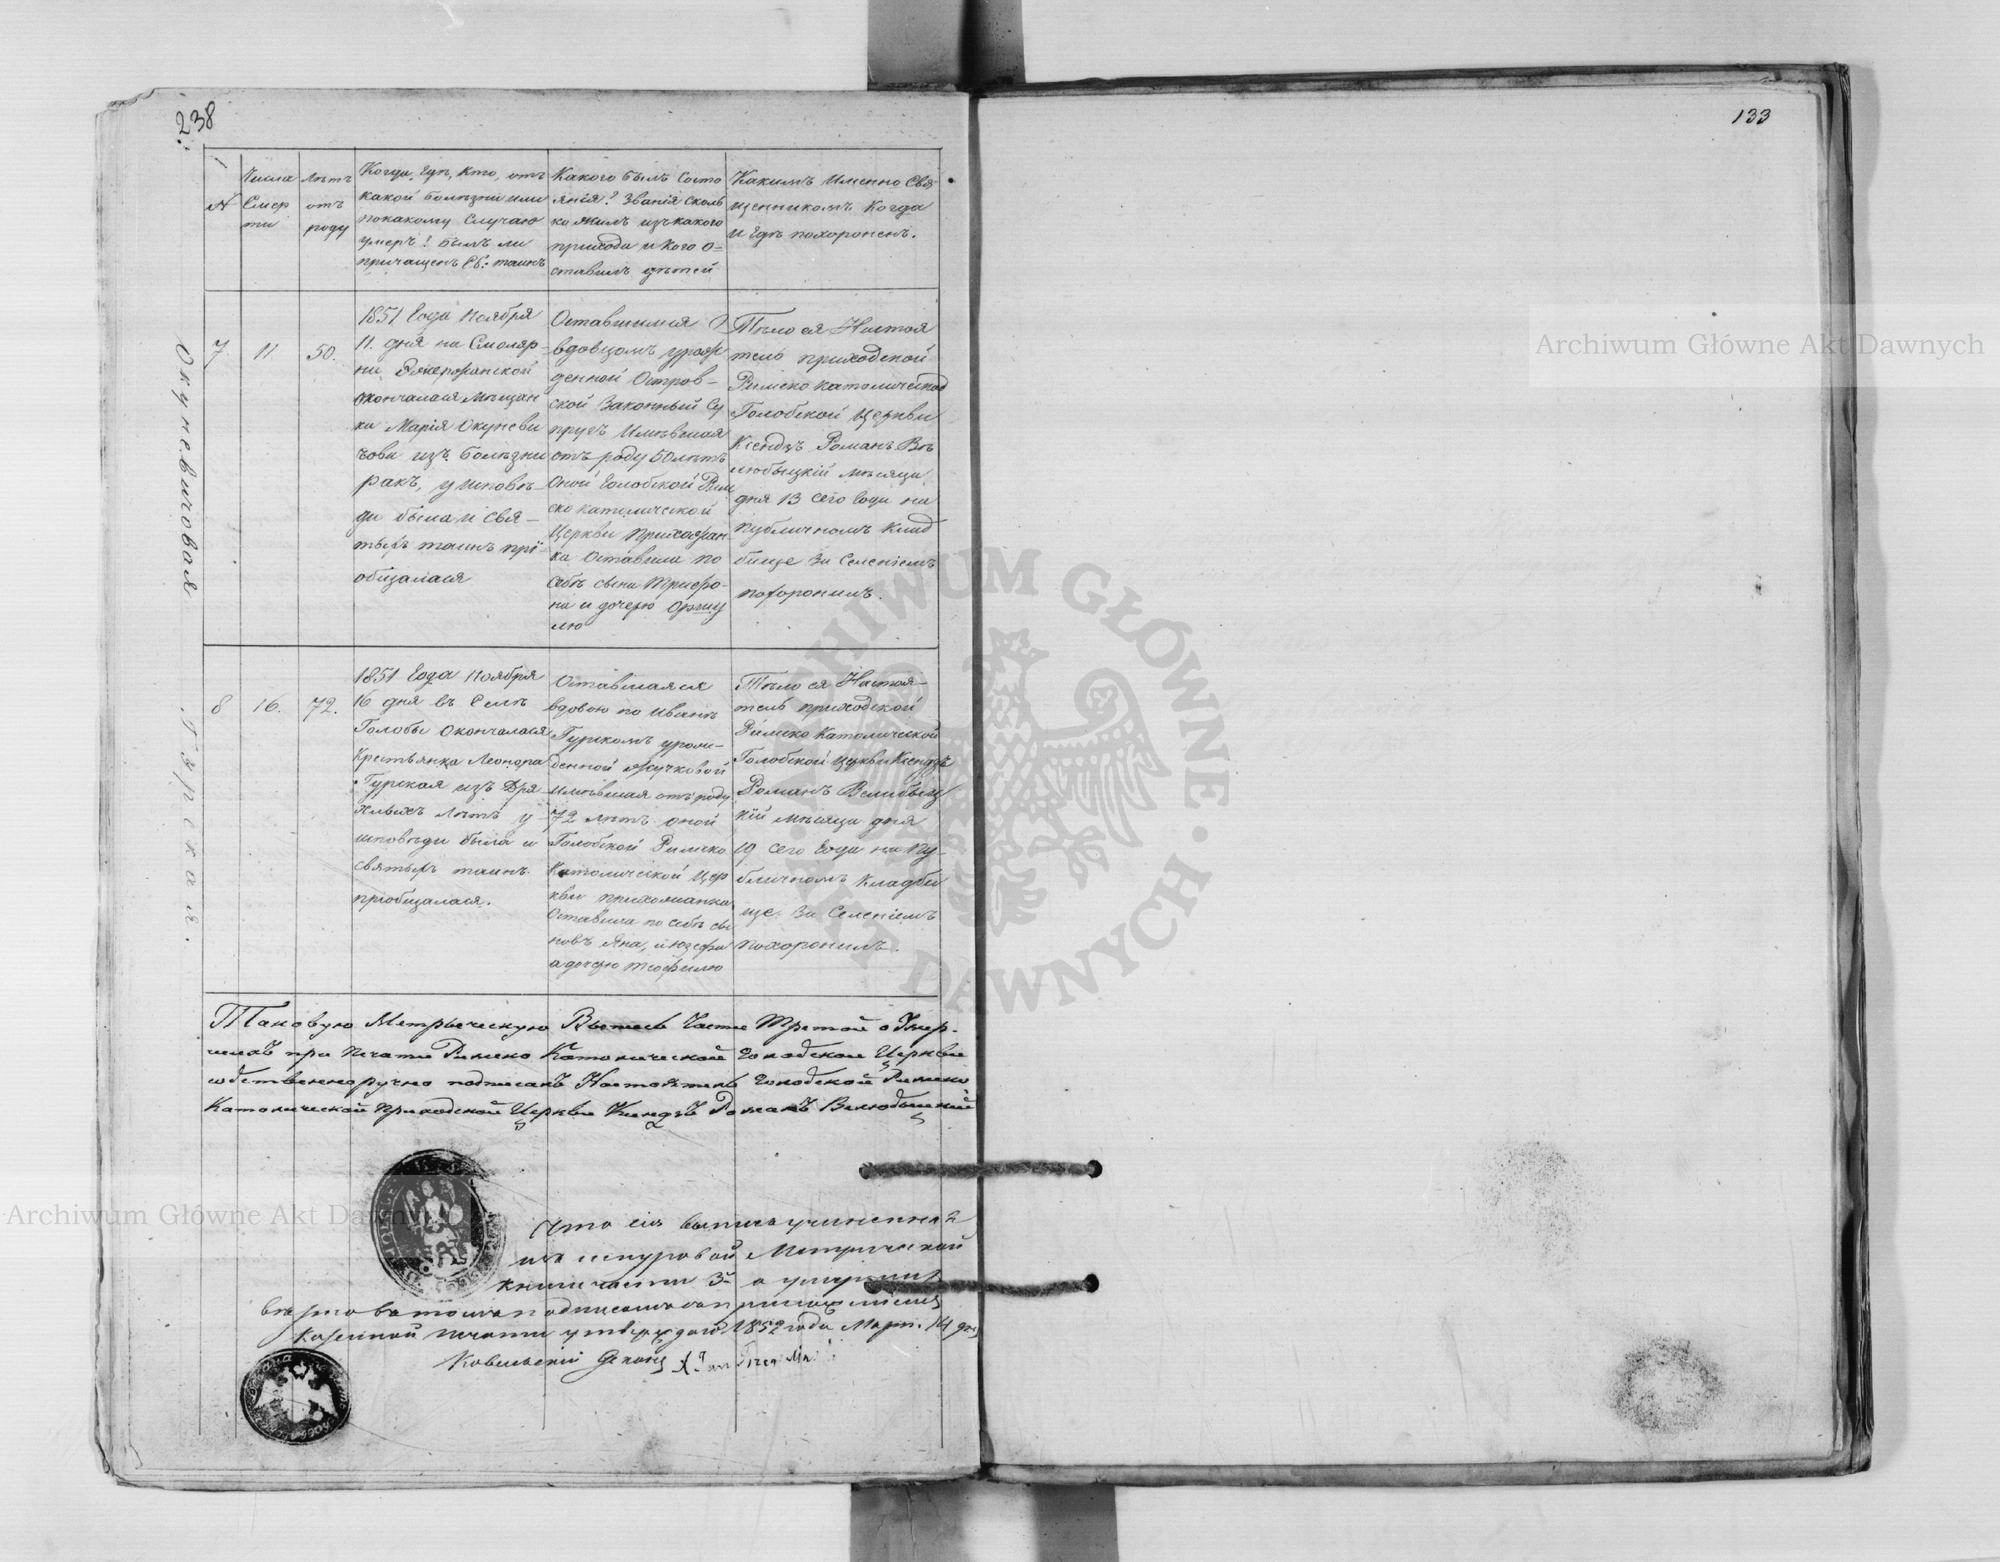 238
133
№
Числа
Смер
ти
Лѣтъ
отъ
роду
Когда, гдѣ, кто, отъ
какой болѣзни или
покакому случаю
умеръ? былъ ли
причащенъ Св: таинъ
Какого былъ состо
янія? званія сколь
ко жилъ изъ какого
прихода и кого о-
ставилъ дѣтей
Какимъ Именно Свя
щенникомъ Когда
и гдѣ похороненъ.
Окуневичовая
7
11
50.
1851 Года Ноября
11. дня на Смоляр-
ни
окончалася Мѣщан
ка Марія Окуневи
чова изъ болѣзни
ракъ, у исповѣ-
ди была и Свя-
тыхъ таинъ прі
общалася
Оставшимся
вдовцомъ урож
денной Остров-
ской Законный Су
пругъ Имѣвшая
отъ роду 50 лѣтъ
Оной Голобской Рим
ско католической
Церкви Прихожан
ка Оставила по
себѣ сына
на и дочерю
лю
Тѣло ея Настоя
тель приходской
Римско католической
Голобской Церкви
Ксендзъ Романъ Ве
любыцкій мѣсяца
дня 13 сего Года на
публичномъ клад
бище за Селеніемъ
похоронилъ.
Гурская.
8
16.
72.
1851 Года Ноября
16 дня въ Селѣ
Голобы Окончалася
Крестьянка Леонора
Гурская изъ Дря
хлыхъ лѣтъ у
исповѣди была и
святыхъ таинъ
приобщалася.
Оставшаяся
вдовою по Иванѣ
Гурскомъ урож-
денной
имѣвшая отъ роду
72 лѣтъ оной
Голобской Римско
Католической Цер
кви прихожанка
Оставила по себѣ сы
новъ Яна, и Юзефа
а дочерю Теофилю
Тѣло ея Настоя-
тель приходской
Римско Католической
Голобской Церкви Ксендзъ
Романъ Велюбыц
кій мѣсяца дня
19 сего Года на Пу-
бличномъ кладби
ще за Селеніемъ
похоронилъ.
Таковую Метрическую Выпись Части Третой о Умер-
шихъ при Печати Римско Католической Голобской Церкви
собственноручно подписалъ Настоятель Голобской Римско
Католической Приходской Церкви Ксендзъ Романъ Велюбыцкій
Что сія выпись учиненная
изъ шнуровой Метрической
книги части 3й о умершихъ
казенной печати утверждаю 1852 года Марта 14 дня
Ковельскій Деканъ
Archiwum Główne Akt Dawnych
Archiwum Główne Akt Dawn
ARCHIWUM GŁÓWNE AKT DAWNYCH